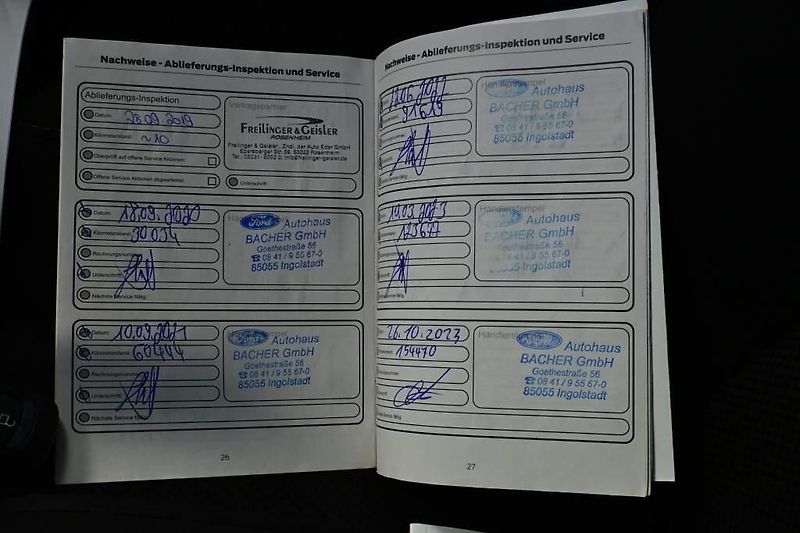 Nachweise - Ablieferungs-Inspektion und Service
Ablieferungs-Inspektion
Datum: 28.09.2019
Kilometerstand: ~10
Überprüft auf offene Service Aktionen:
Offene Service Aktionen abgearbeitet:
Vertragspartner
FREILINGER & GEISLER
ROSENHEIM
Freilinger & Geisler, Zndl. der Auto Eder GmbH
Unterschrift
Datum: 18.09.2020
Kilometerstand: 30034
Rechnungsnummer
Unterschrift
Nächste Service fällig:
Ford Autohaus
BACHER GmbH
Goethestraße 56
☎ 08 41 / 9 55 67-0
85055 Ingolstadt
Datum: 10.09.2021
Kilometerstand: 60444
Rechnungsnummer
Unterschrift
Nächste Service fällig:
Ford Autohaus
BACHER GmbH
Goethestraße 56
☎ 08 41 / 9 55 67-0
85055 Ingolstadt
26
Nachweise - Ablieferungs-Inspektion und Service
06.2022
91619
Händlerstempel
Autohaus
BACHER GmbH
Goethestraße 56
☎ 08 41 / 9 55 67-0
85055 Ingolstadt
19.03.2023
123677
Händlerstempel
Autohaus
BACHER GmbH
Goethestraße 56
☎ 08 41 / 9 55 67-0
85055 Ingolstadt
26.10.2023
154470
Händlerstempel
Ford Autohaus
BACHER GmbH
Goethestraße 56
☎ 08 41 / 9 55 67-0
85055 Ingolstadt
27